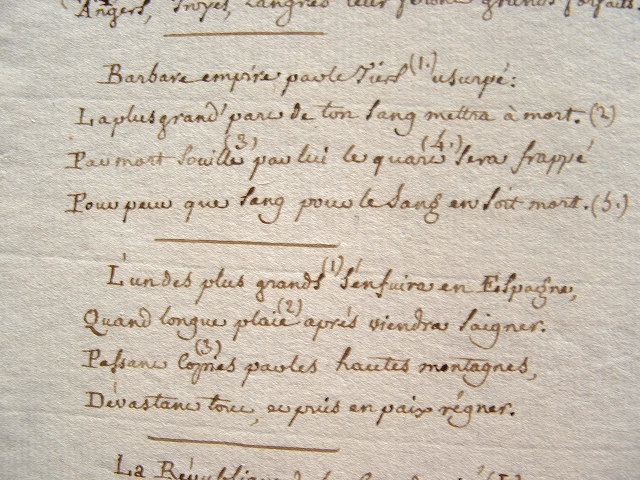 Angers, Troyes, Langres leur feront grands forfaits.
Barbare empire par le Tiers (1.) usurpé:
La plus grand' part de ton sang mettra à mort. (2)
Par mort souille (3) par lui le quart (4.) sera frappé
Pour peur que sang pour le sang en soit mort. (5.)
L'un des plus grands (1) s'enfuira en Espagne,
Quand longue plaie (2) aprés viendra saigner.
Passant Copies (3) par les hautes montagnes,
Dévastant tout, et puis en paix régner.
La République